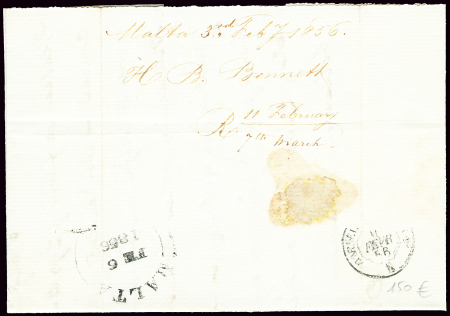 Malta 3rd Feby 1856.
H. B. Bennett
R 11 February
7th March
MALT
FE 6
1856
11
FEVR
56
150 €